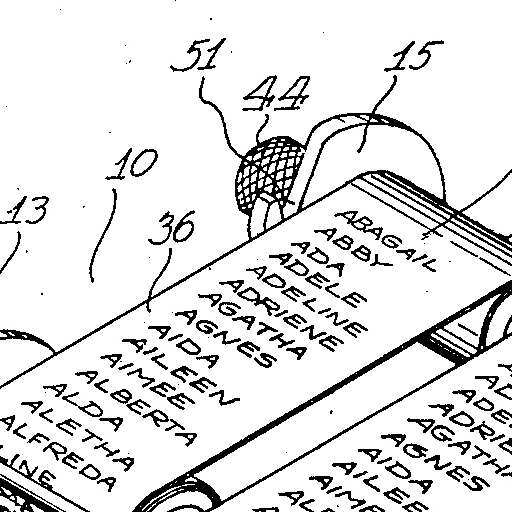 51
44
15
10
13
36
ABAGAIL
ABBY
ADA
ADELE
ADELINE
ADRIENE
AGATHA
AGNES
AIDA
AILEEN
AIMEE
ALBERTA
ALDA
ALETHA
ALFREDA
LINE
ADE
ADRIE
AGATHA
AGNES
AIDA
AILEE
AIM